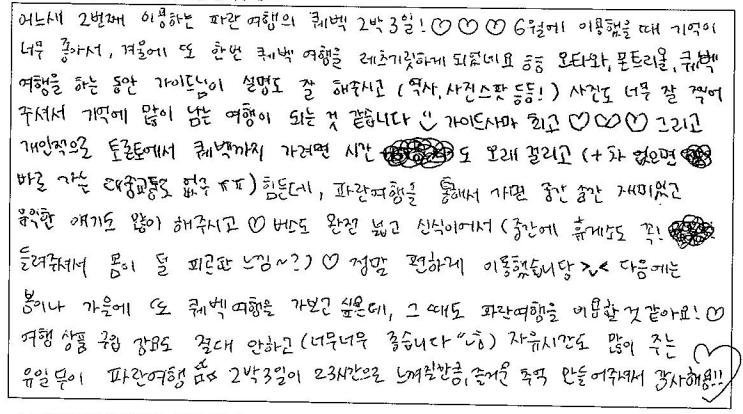 어느새 2번째 이용하는 파란 여행의 퀘벡 2박3일! ♡ ♡ ♡ 6월에 이용했을 때 기억이
너무 좋아서, 겨울에 또 한번 퀘벡 여행을 하게 되었네요 ㅎㅎ 오타와, 몬트리올, 퀘벡
여행을 하는 동안 가이드님이 설명도 잘 해주시고 (역사, 사진스팟 등등!) 사진도 너무 잘 찍어
주셔서 기억에 많이 남는 여행이 되는 것 같습니다 가이드사마 최고 ♡ ♡ ♡ 그리고
개인적으로 토론토에서 퀘벡까지 가려면 시간도 오래 걸리고 (+ 차 없으면
바로 가는 대중교통도 없구 ㅠㅠ) 힘든데, 파란여행을 통해서 가면 중간 중간 재미있고
유익한 얘기도 많이 해주시고 ♡ 버스도 완전 넓고 신식이어서 (중간에 휴게소도 꼭!
들려주셔서 몸이 덜 피곤한 느낌~?) ♡ 정말 편하게 이동했습니당 >_< 다음에는
봄이나 가을에 또 퀘벡여행을 가보고 싶은데, 그 때도 파란여행을 이용할 것 같아요! ♡
여행 상품 구입 강요도 절대 안하고 (너무너무 좋습니다) 자유시간도 많이 주는
유일무이 파란여행 2박3일이 23시간으로 느껴질만큼, 즐거운 추억 만들어주셔서 감사해용!!